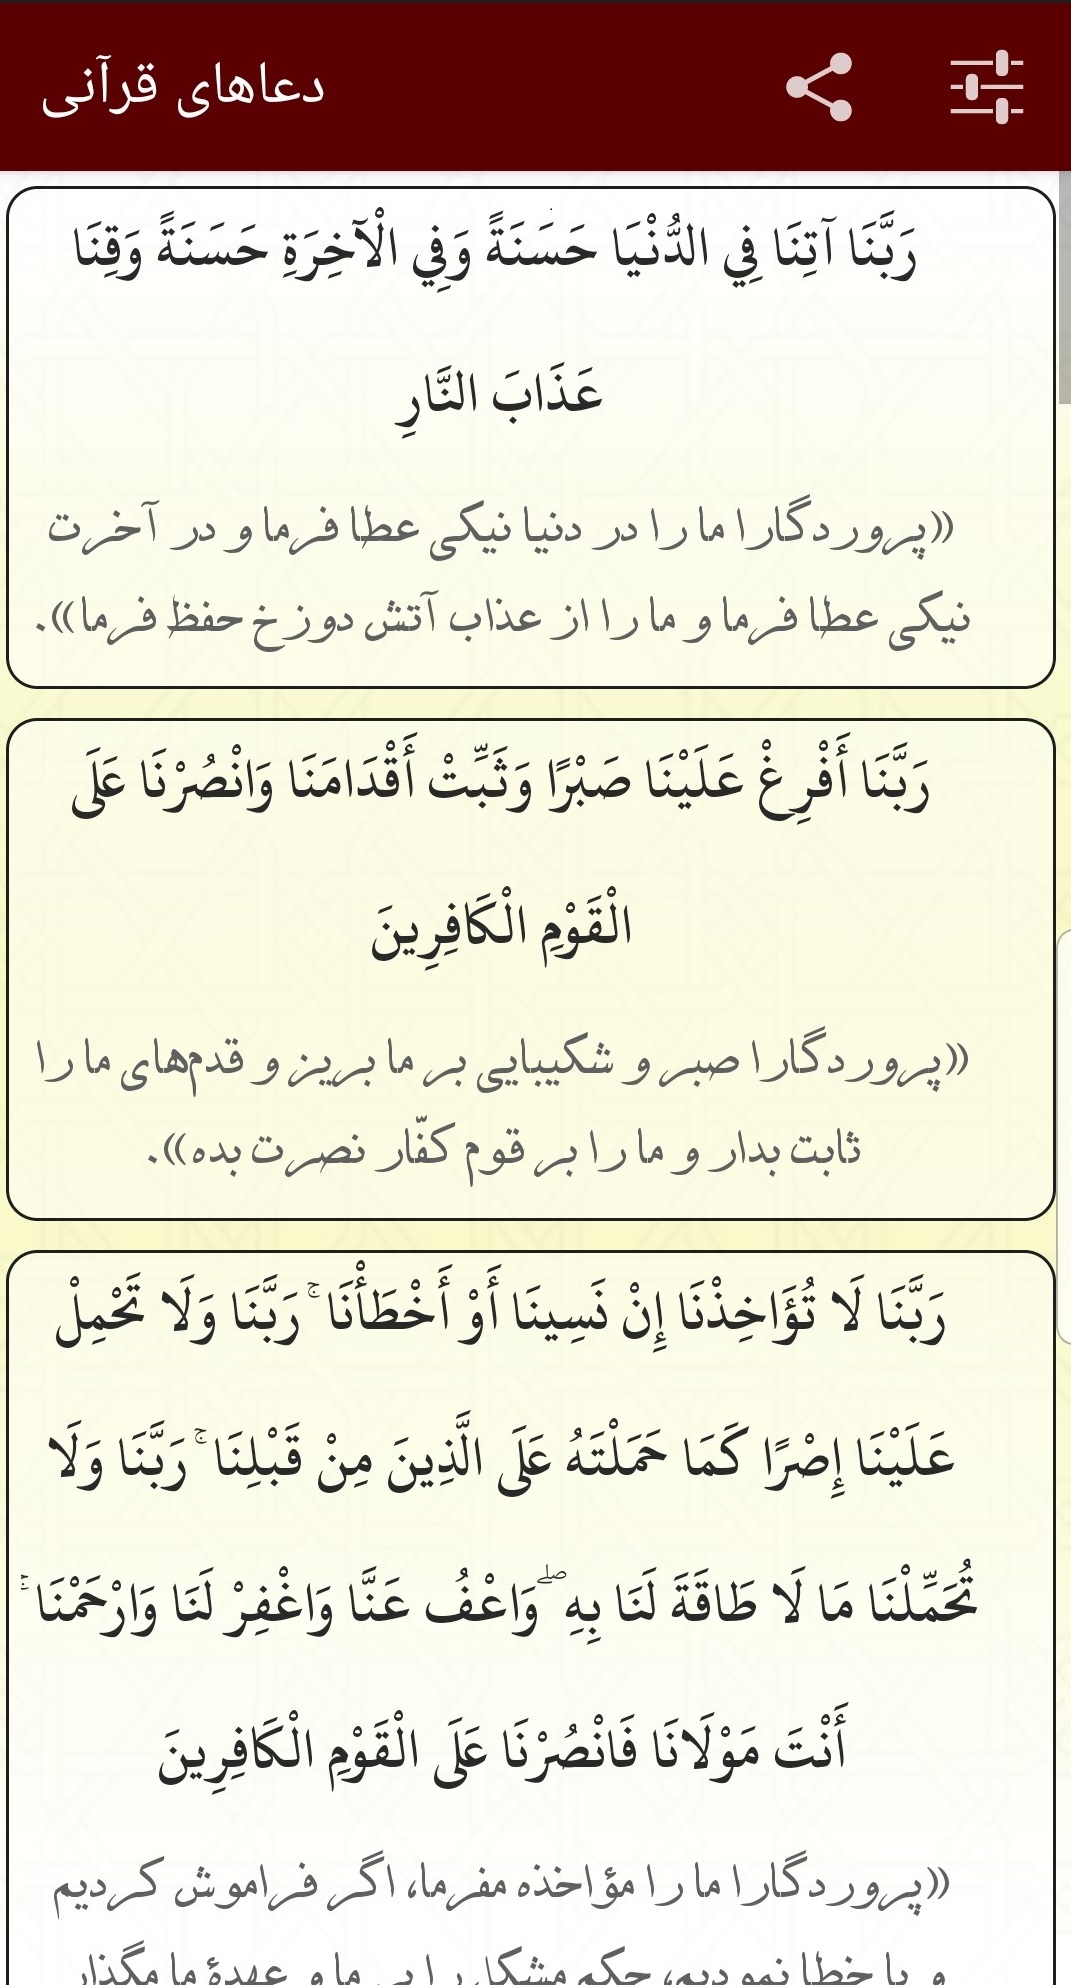 دعاهای قرآنی
رَبَّنَا آتِنَا فِي الدُّنْيَا حَسَنَةً وَفِي الْآخِرَةِ حَسَنَةً وَقِنَا
عَذَابَ النَّارِ
«پروردگارا ما را در دنیا نیکی عطا فرما و در آخرت
نیکی عطا فرما و ما را از عذاب آتش دوزخ حفظ فرما».
رَبَّنَا أَفْرِغْ عَلَيْنَا صَبْرًا وَثَبِّتْ أَقْدَامَنَا وَانْصُرْنَا عَلَى
الْقَوْمِ الْكَافِرِينَ
«پروردگارا صبر و شکیبایی بر ما بریز و قدم‌های ما را
ثابت بدار و ما را بر قوم کفّار نصرت بده».
رَبَّنَا لَا تُؤَاخِذْنَا إِنْ نَسِينَا أَوْ أَخْطَأْنَا ۚ رَبَّنَا وَلَا تَحْمِلْ
عَلَيْنَا إِصْرًا كَمَا حَمَلْتَهُ عَلَى الَّذِينَ مِنْ قَبْلِنَا ۚ رَبَّنَا وَلَا
تُحَمِّلْنَا مَا لَا طَاقَةَ لَنَا بِهِ ۖ وَاعْفُ عَنَّا وَاغْفِرْ لَنَا وَارْحَمْنَا ۚ
أَنْتَ مَوْلَانَا فَانْصُرْنَا عَلَى الْقَوْمِ الْكَافِرِينَ
«پروردگارا ما را مؤاخذه مفرما، اگر فراموش کردیم
و یا خطا نمودیم، حکم مشکل را بر ما و عهدهٔ ما مگذار